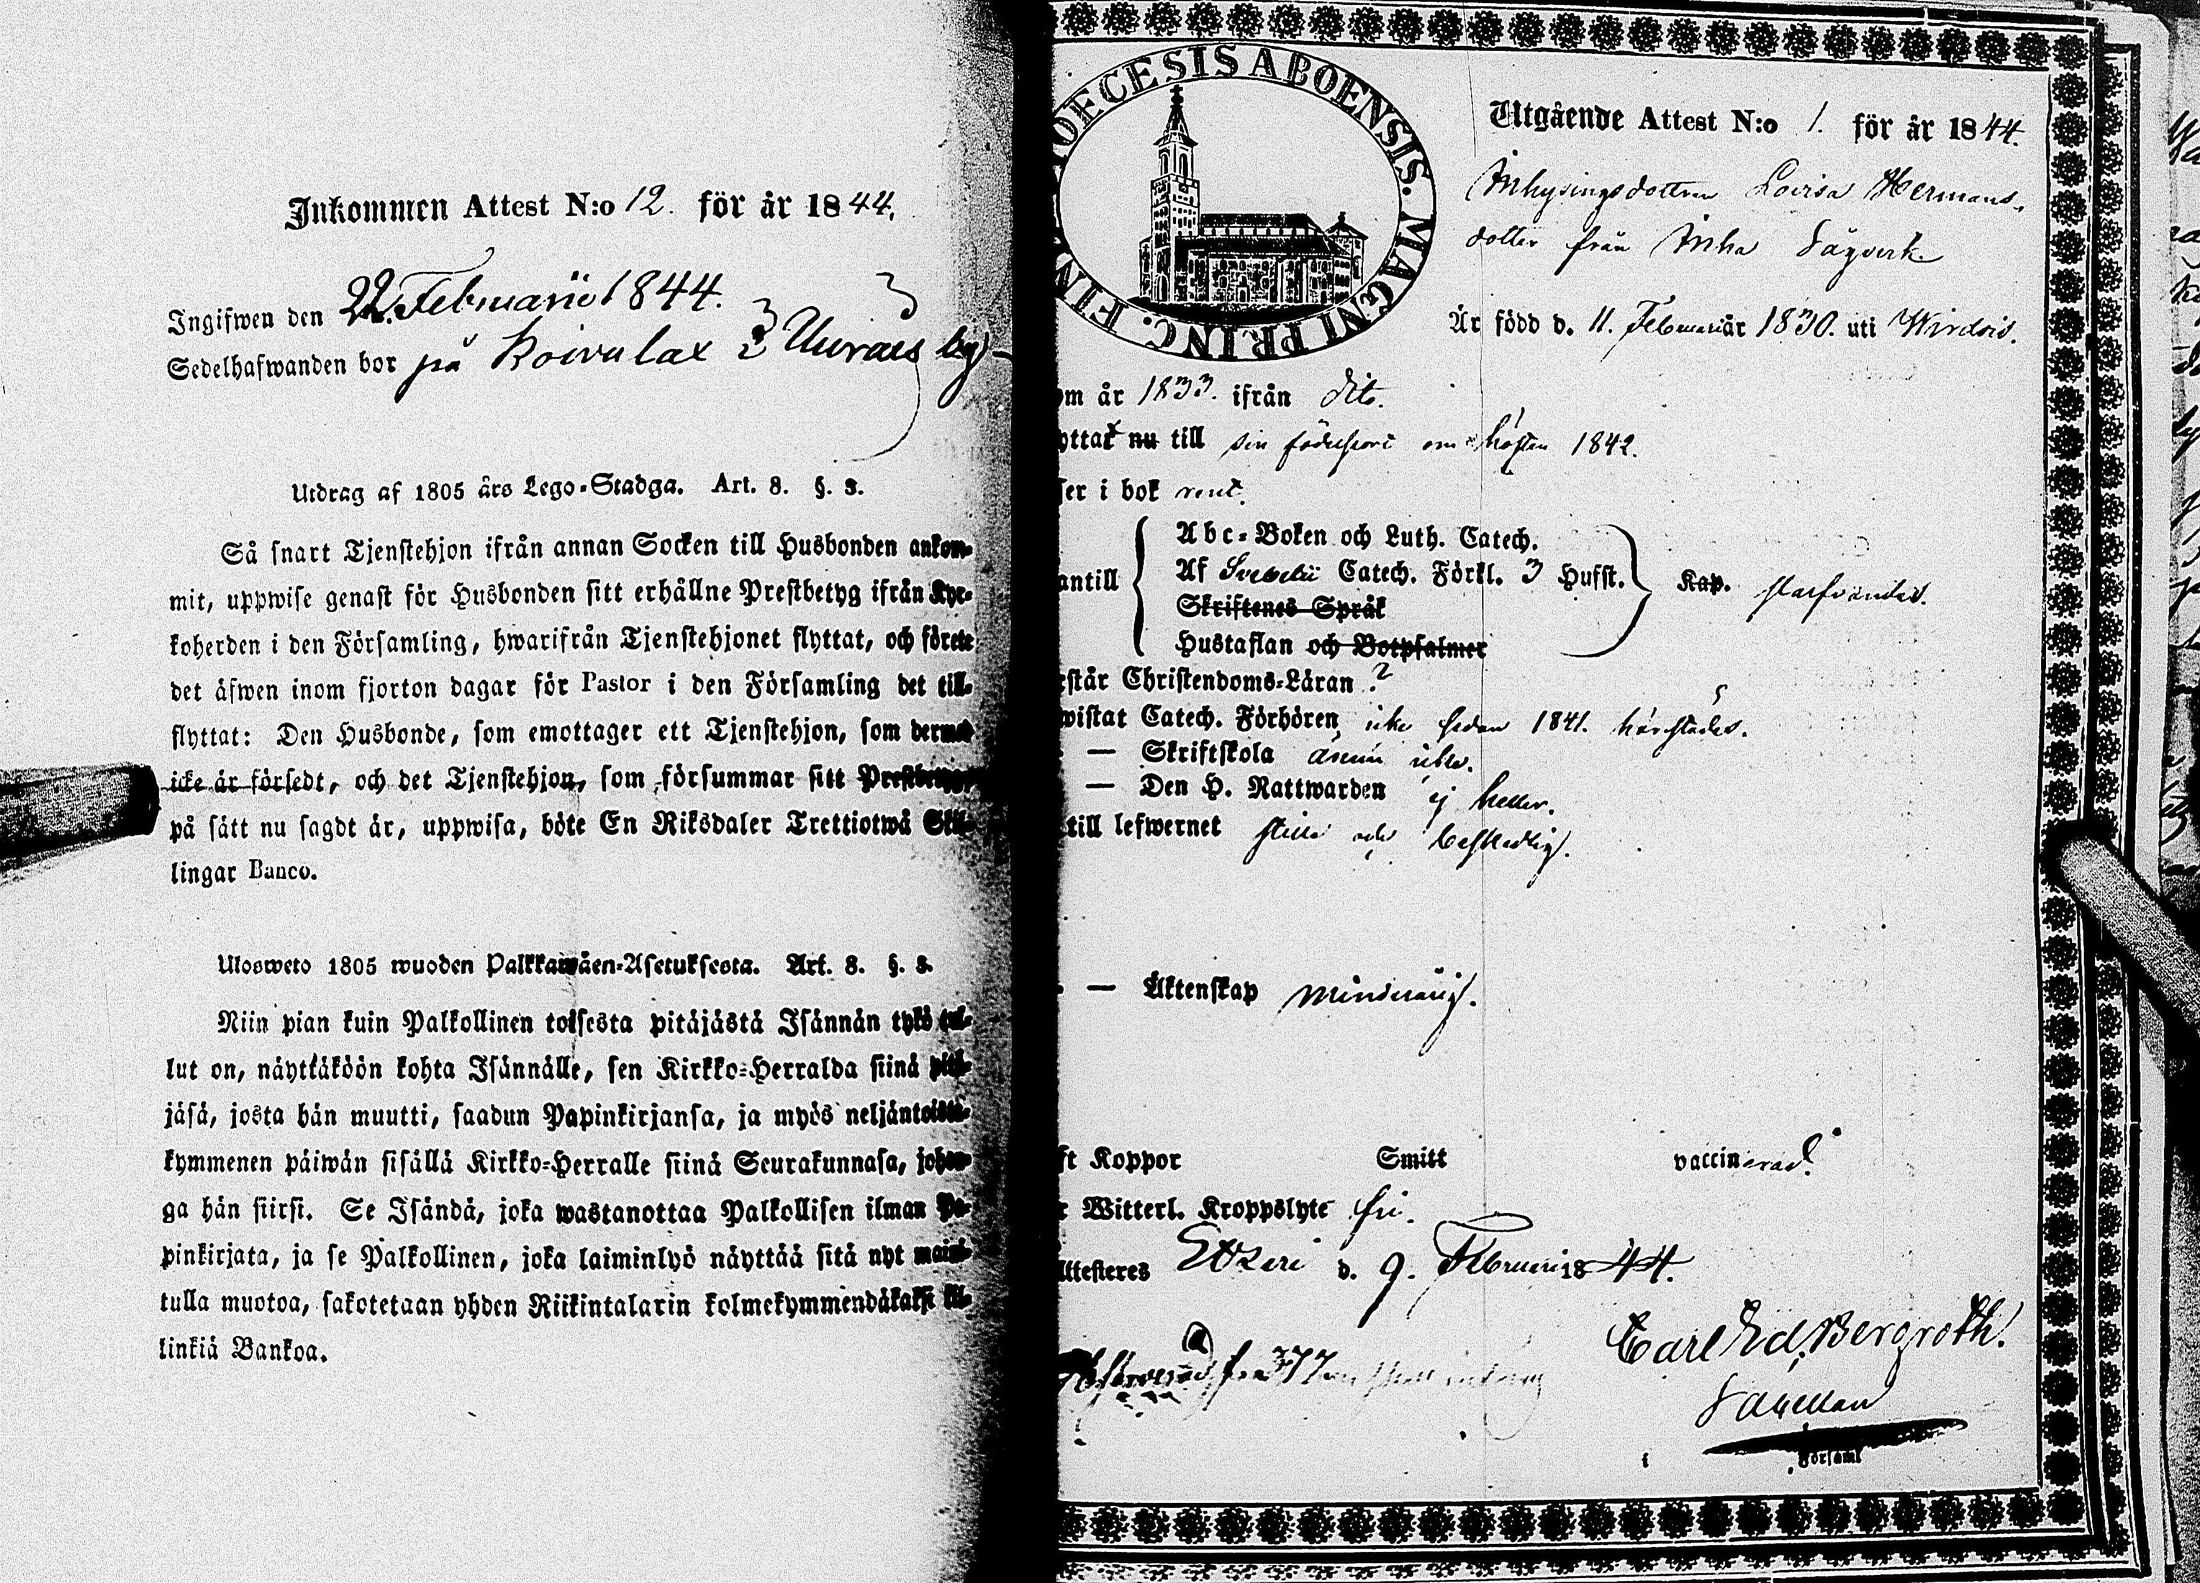 Inkommen Attest N:o 12. för år 1844.
Ingifwen den 22. Februarii 1844.
Sedelhafwanden bor på Koivulax i Uurais by
Utdrag af 1805 års Lego-Stadga. Art. 8. §. 3.
Så snart Tjenstehjon ifrån annan Socken till Husbonden ankom-
mit, uppwise genast för Husbonden sitt erhållne Prestbetyg ifrån Kyr-
koherden i den Församling, hwarifrån Tjenstehjonet flyttat, och förete
det äfwen inom fjorton dagar för Pastor i den Församling det till-
flyttat: Den Husbonde, som emottager ett Tjenstehjon, som dermed
icke är försedt, och det Tjenstehjon, som försummar sitt Prestbetyg,
på sätt nu sagdt är, uppwisa, böte En Riksdaler Trettiotwå Skil-
lingar Banco.
Ulosweto 1805 wuoden Palkkawäen-Asetuksesta. Art. 8. §. 3.
Niin pian kuin Palkollinen toisesta pitäjästä Isännän tykö tul-
lut on, näyttäköön kohta Isännälle, sen Kirkko-Herralda siinä pitä-
jäsä, josta hän muutti, saadun Papinkirjansa, ja myös neljäntoista-
kymmenen päiwän sisällä Kirkko-Herralle siinä Seurakunnasa, johon-
ga hän siirsi. Se Isändä, joka wastanottaa Palkollisen ilman Pa-
pinkirjata, ja se Palkollinen, joka laiminlyö näyttää sitä nyt maini-
tulla muotoa, sakotetaan yhden Riikintalarin kolmekymmendäkaksi kil-
linkiä Bankoa.
DIOECESIS ABOENSIS. MAGNI PRINC. FIN
Utgående Attest N:o 1. för år 1844.
Inhysingsdottren Lovisa Hermans-
dotter från Inha Sågverk
Är född d. 11. Februarii år 1830. uti Wirdois.
om år 1833. ifrån dito.
yttat nu till sin födelseort om hösten 1842.
ser i bok rent.
antill
Abc-Boken och Luth. Catech.
Af Svebelii Catech. Förkl. 3 Hufst.
Skriftenes Språk
Hustaflan och Botpsalmer
Kap. stafvandes.
estår Christendoms-Läran ?
wistat Catech. Förhören icke sedan 1841. härstädes.
— Skriftskola ännu icke.
— Den H. Nattwarden ej heller.
till lefwernet stilla och beskedlig.
— Äktenskap minderårig.
ft Koppor Smitt vaccinerad.
r Witterl. Kroppslyte fri.
Attesteres Etseri d. 9. Februarii 1844.
Carl Ed. Bergroth.
Sacellan
i Församl